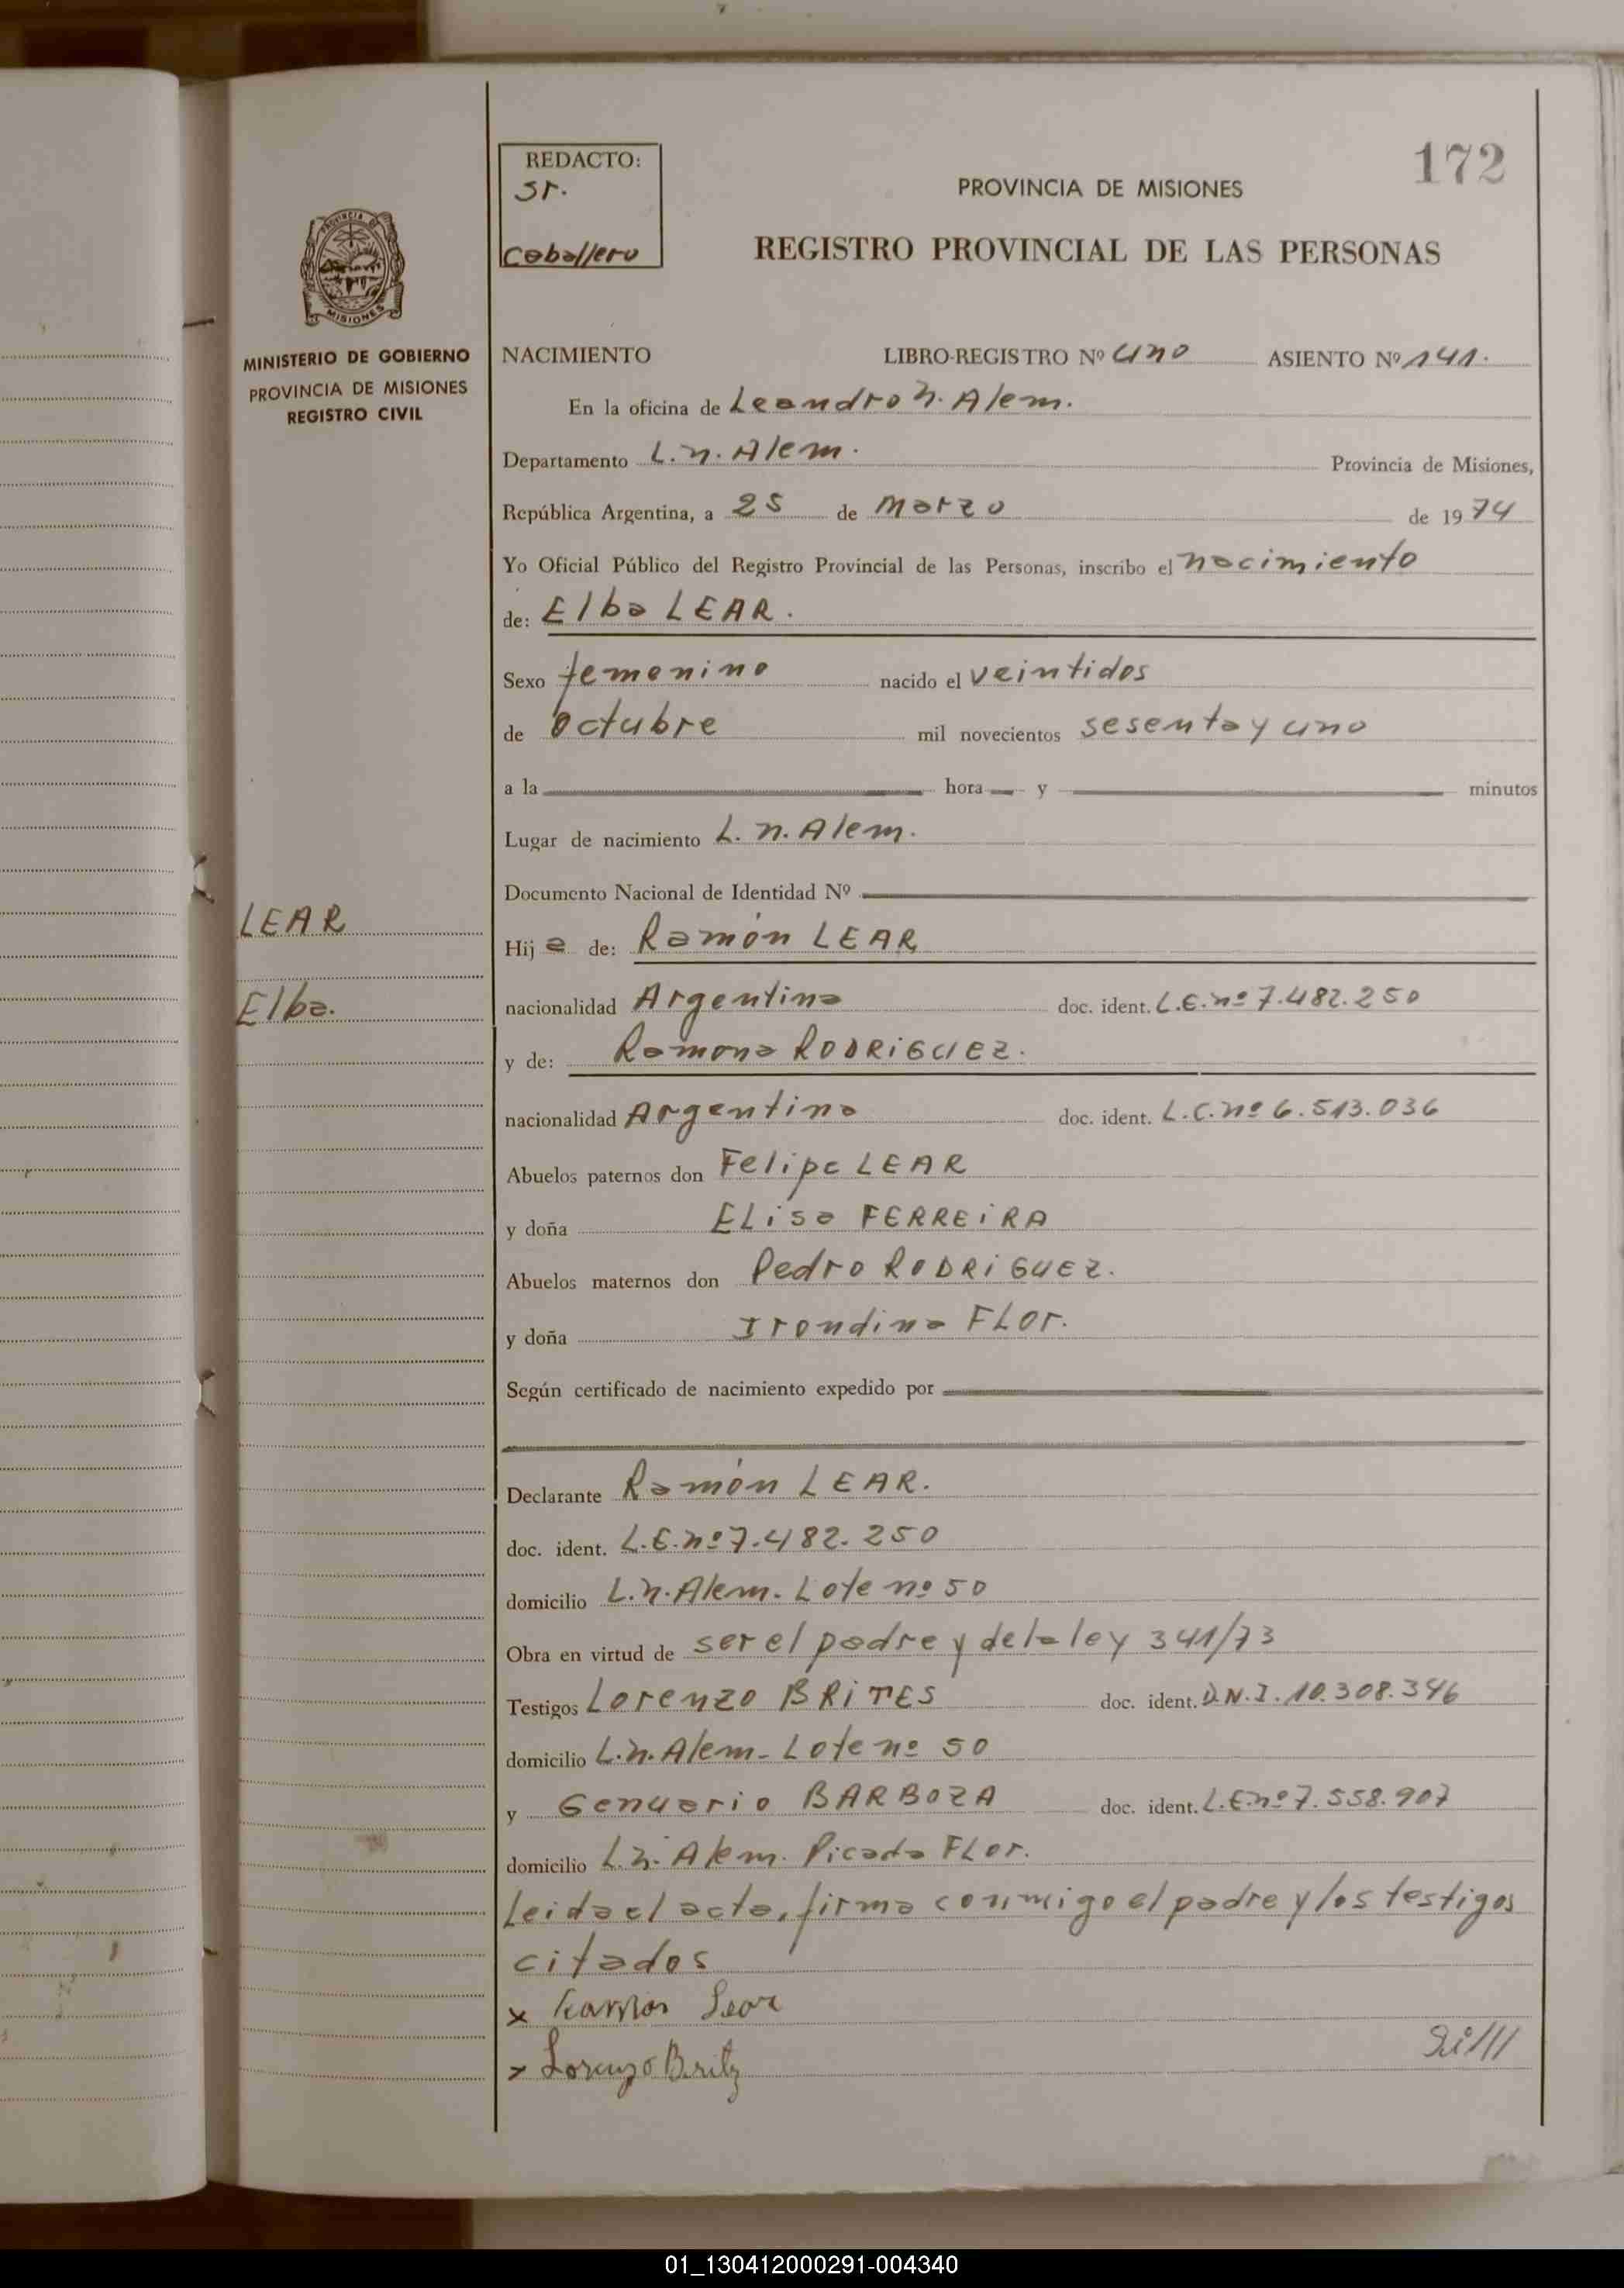 172
REDACTO:
Sr.
Caballero
PROVINCIA DE MISIONES
REGISTRO PROVINCIAL DE LAS PERSONAS
PROVINCIA DE
MISIONES
MINISTERIO DE GOBIERNO
PROVINCIA DE MISIONES
REGISTRO CIVIL
NACIMIENTO LIBRO-REGISTRO Nº uno ASIENTO Nº 141.
En la oficina de Leandro N. Alem.
Departamento L.N. Alem. Provincia de Misiones,
República Argentina, a 25 de Marzo de 1974
Yo Oficial Público del Registro Provincial de las Personas, inscribo el nacimiento
de: Elba LEAR.
Sexo femenino nacido el veintidos
de Octubre mil novecientos sesenta y uno
a la hora y minutos
Lugar de nacimiento L. N. Alem.
Documento Nacional de Identidad Nº
LEAR
Hij a de: Ramón LEAR
Elba.
nacionalidad Argentina doc. ident. L.E. nº 7.482.250
y de: Ramona RODRIGUEZ.
nacionalidad Argentina doc. ident. L.C. nº 6.513.036
Abuelos paternos don Felipe LEAR
y doña ELisa FERREIRA
Abuelos maternos don Pedro RODRIGUEZ.
y doña Irondina FLor.
Según certificado de nacimiento expedido por
Declarante Ramón LEAR.
doc. ident. L.E. nº 7.482.250
domicilio L.N. Alem. Lote nº 50
Obra en virtud de ser el padre y de la ley 341/73
Testigos Lorenzo BRITES doc. ident. D.N.I. 10.308.346
domicilio L.N. Alem- Lote nº 50
y Genuario BARBOZA doc. ident. L.E. nº 7.558.907
domicilio L.N. Alem. Picada FLor.
Leida el acta, firma conmigo el padre y los testigos
citados
x Ramon Lear
x Lorenzo Britz
01_130412000291-004340